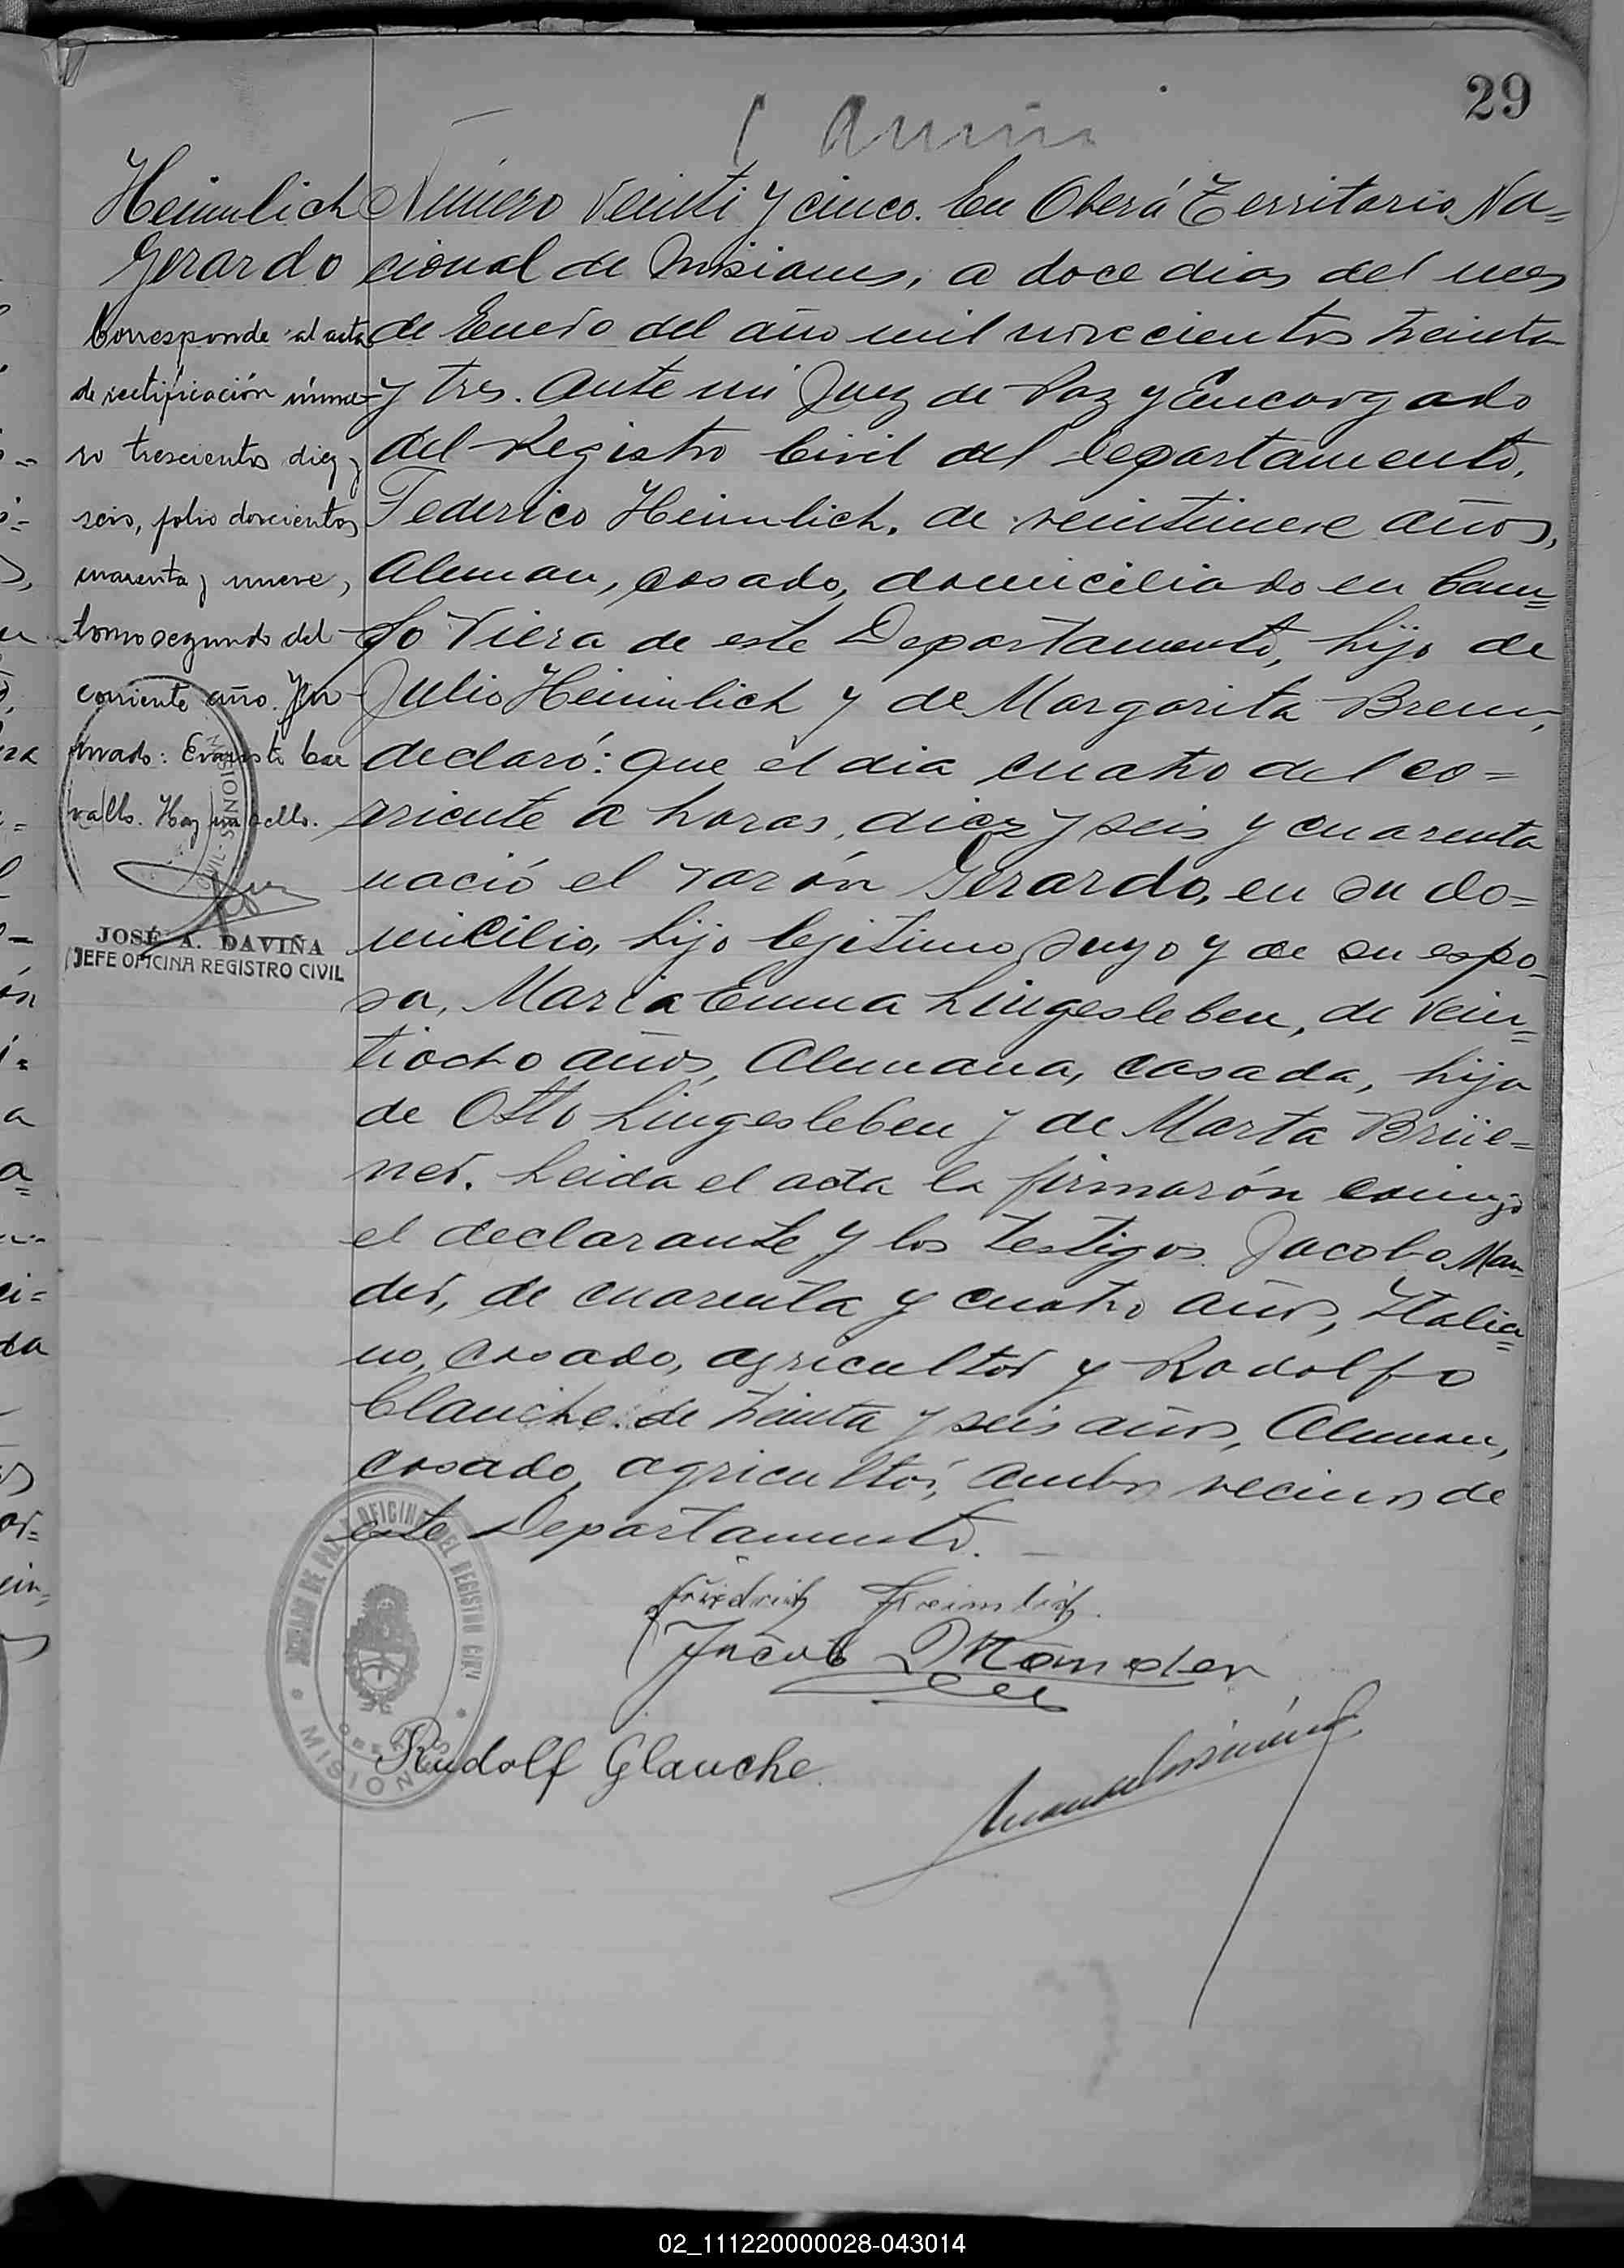 29
Heimlich
Gerardo
Corresponde al acta
de rectificación núme-
ro trescientos diez y
seis, folio doscientos
cuarenta y nueve,
tomo segundo del
corriente año. Fir-
mado: Evaristo Car
vallo. Hay un sello.
JOSÉ A. DAVIÑA
JEFE OFICINA REGISTRO CIVIL
Número Veinti y cinco. En Oberá Territorio Na=
cional de Misiones, a doce dias del mes
de Enero del año mil novecientos treinta
y tres. Ante mi Juez de Paz y Encargado
del Registro Civil del Departamento,
Federico Heimlich, de veintinueve años,
Aleman, casado, domiciliado en Cam=
po Viera de este Departamento, hijo de
Julio Heimlich y de Margarita Breur,
declaró: que el dia cuatro del co=
rriente a horas, diez y seis y cuarenta
nació el varón Gerardo, en su do=
micilio, hijo lejitimo suyo y de su espo-
sa, Maria Emma Lingesleben, de vein=
tiocho años, Alemana, casada, hija
de Otto Lingesleben y de Marta Brüe=
ner. Leida el acta la firmarón conmigo
el declarante y los testigos Jacobo Man-
der, de cuarenta y cuatro años, Italia=
no, casado, agricultor y Rodolfo
Clauche de treinta y seis años, Aleman,
casado, agricultor, ambos vecinos de
este Departamento.
Friedrich Heimlich.
Jacob Mander
Rudolf Glauche
JUZGADO DE PAZ Y OFICINA DEL REGISTRO CIVIL
OBERÁ
MISIONES
02_111220000028-043014